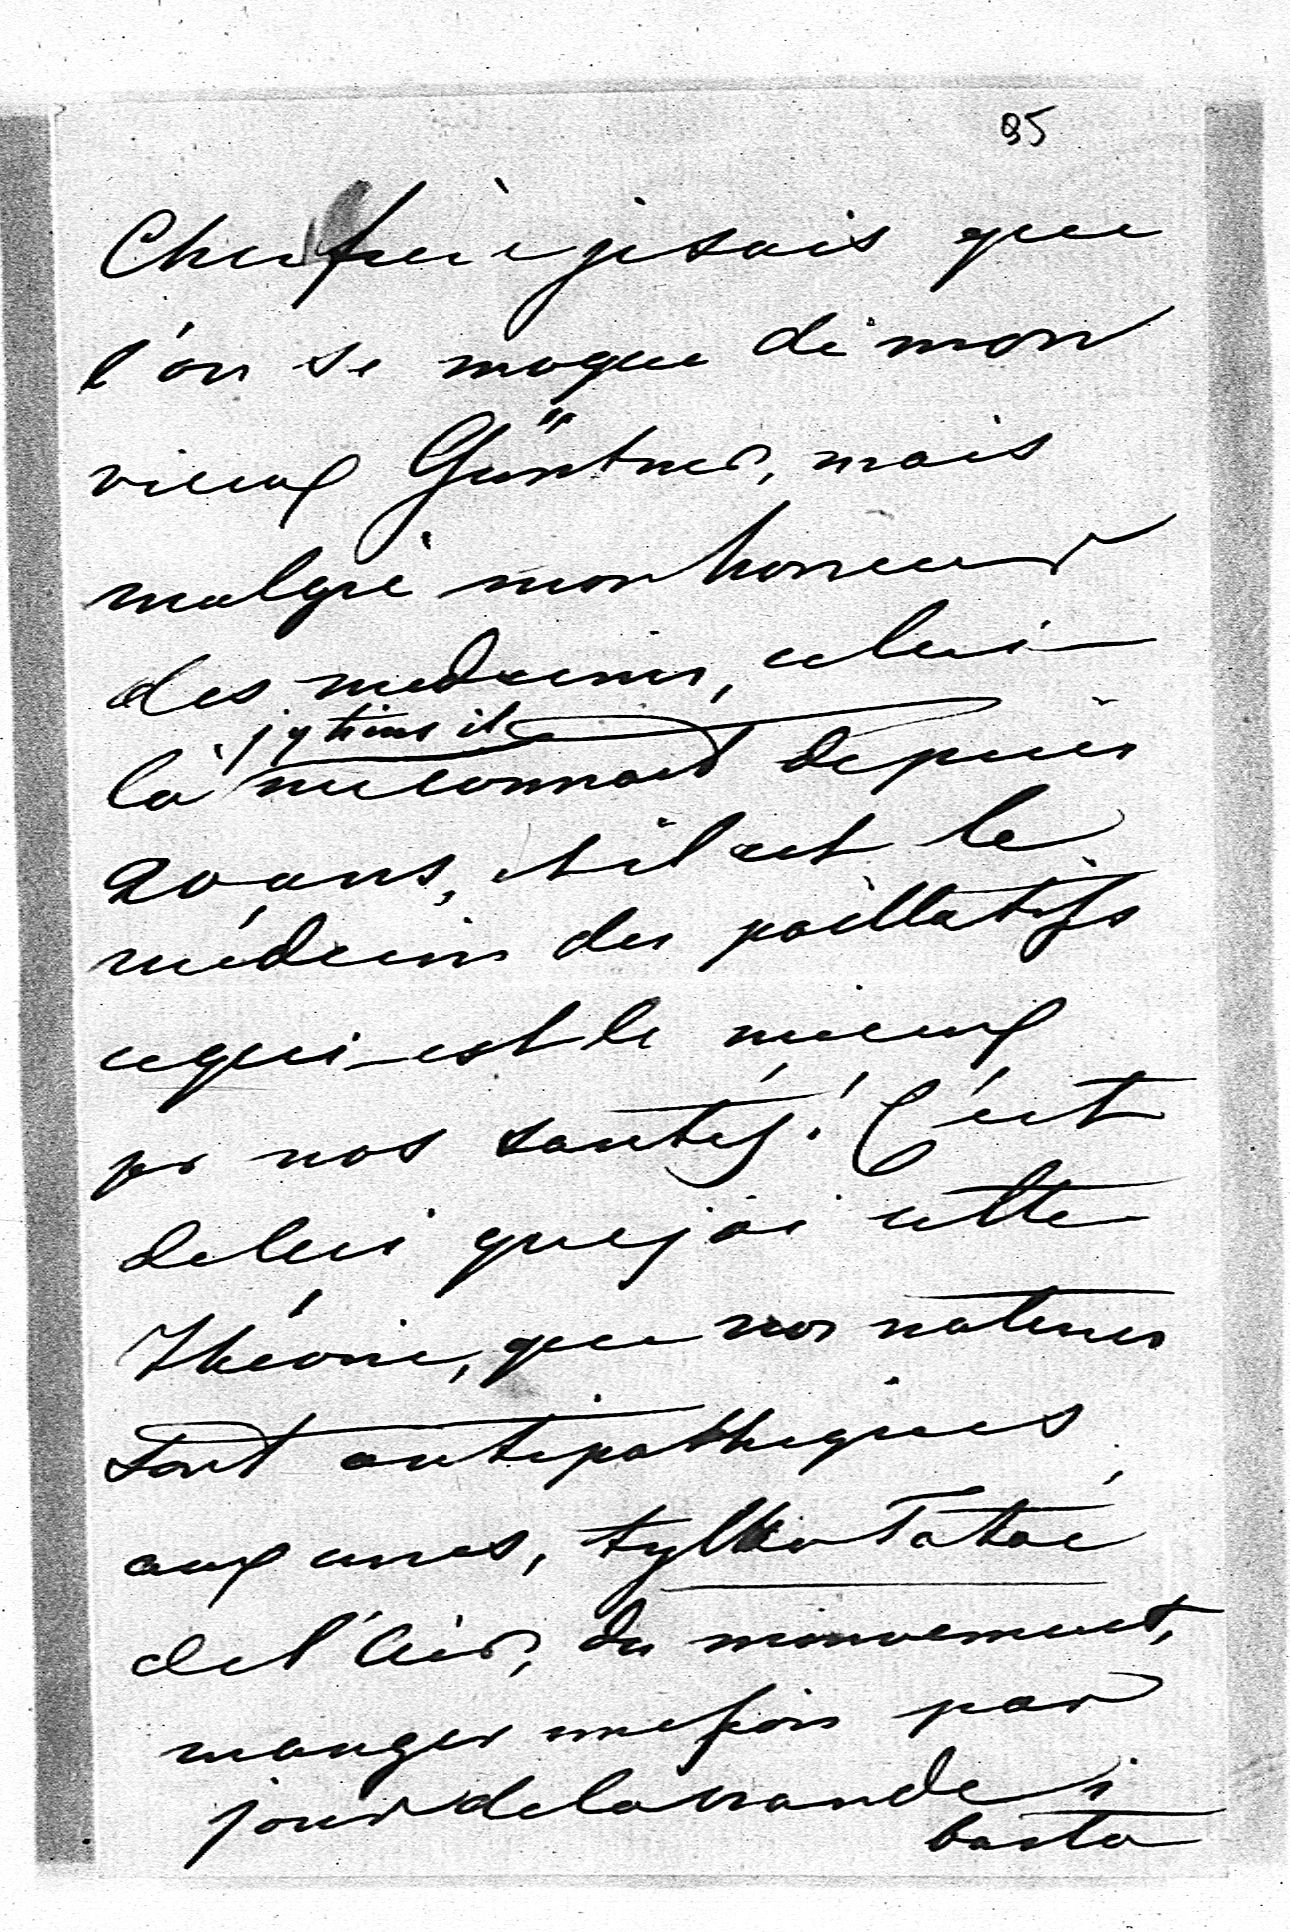 95
Cher frère je sais que
l'on se moque de mon
vieux Güntner, mais
malgré mon horreur
des medecins, celui
j'y tiens il
là me connait depuis
20 ans, et il est le
médecin des paillatifs
ce qui est le mieux
pr nos santés! C'est
de lui que j'ai cette
théorie, que nos natures
sont antipathiques
aux cures, tylko
de l'air, du mouvement,
manger une fois par
jour de la viande i
basta